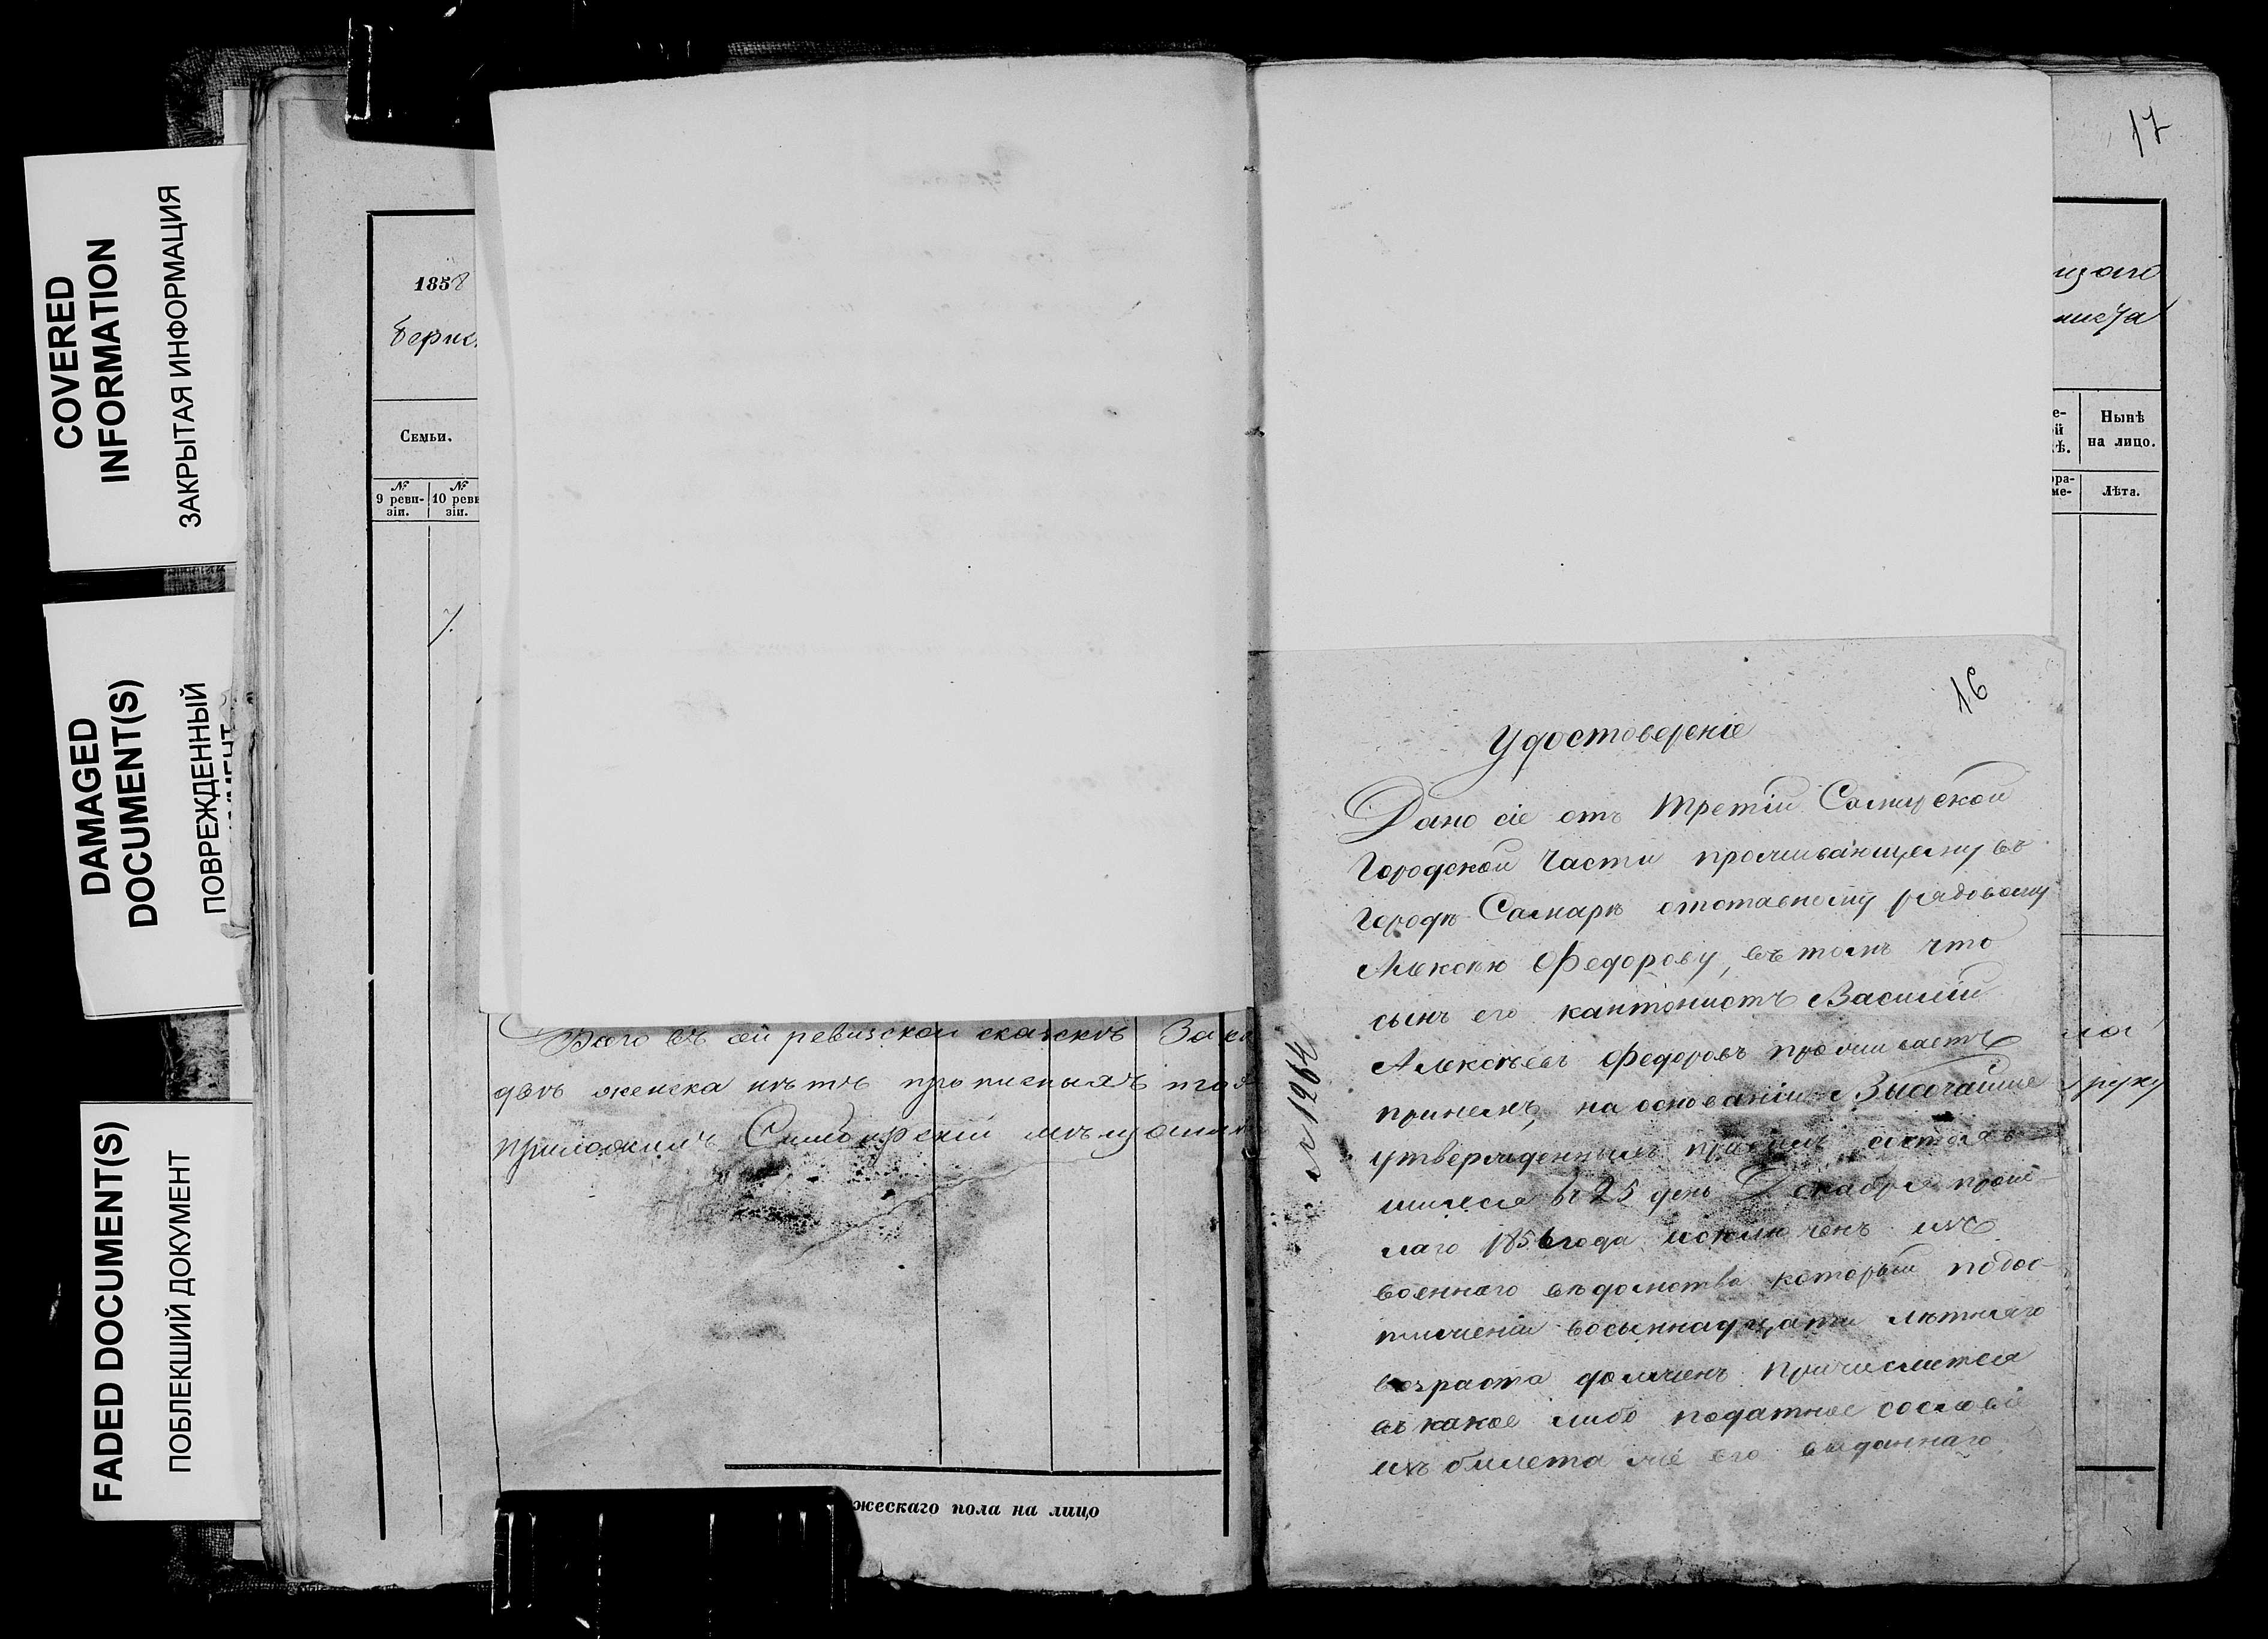 COVERED
INFORMATION
ЗАКРЫТАЯ ИНФОРМАЦИЯ
DAMAGED
DOCUMENT(S)
ПОВРЕЖДЕННЫЙ
FADED DOCUMENT(S)
ПОБЛЕКШИЙ ДОКУМЕНТ
1858
Семьи.
№ 9 реви-зіи.
№ 10 реви зіи.
7.
въ сей ревизской сказкѣ
женска нѣтъ прописныхъ
приложилъ Симбирскій
жескаго пола на лицо
17
щаго
Нынѣ
на лицо.
Лѣта.
руку
16
Удостоверенiе
Дано сіе отъ третій Самарской
Городской Части проживающему въ
городѣ Самарѣ отставному рядовому
Алексѣю Федорову, въ томъ что
сынъ его кантонистъ Василій
Алексѣевъ Федоровъ проживаетъ
при немъ, на основаніи Высочайше
утвержденныхъ правилъ состояв-
шихся въ 25 день Декабря прош-
лаго 1856 года исключенъ изъ
военнаго вѣдомства который по дос-
тиженіи восьмнадцати лѣтняго
возраста долженъ причислится
въ какое либо податное сословіе
изъ билета же его выданнаго
№ 1964